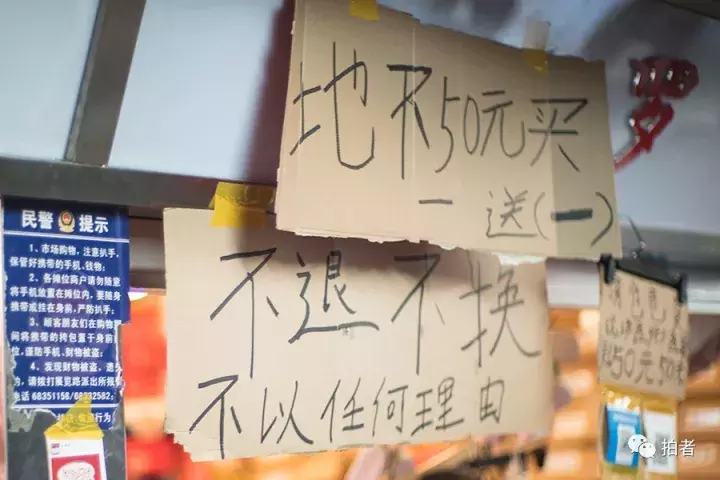 地不50元买
一送(一)
不退不换
不以任何理由
民警 提示
1、市场购物，注意扒手，
保管好携带的手机、钱物；
2、各摊位商户请勿随意
将手机放置在摊位内，要随身
携带或拴在身前，严防扒手；
3、顾客朋友们在购物
间将携带的挎包置于身前
位，谨防手机、财物被盗；
4、发现财物被盗，
请拨打展览路派出所报
电话 68351158 / 68332582；
50元50
拍者